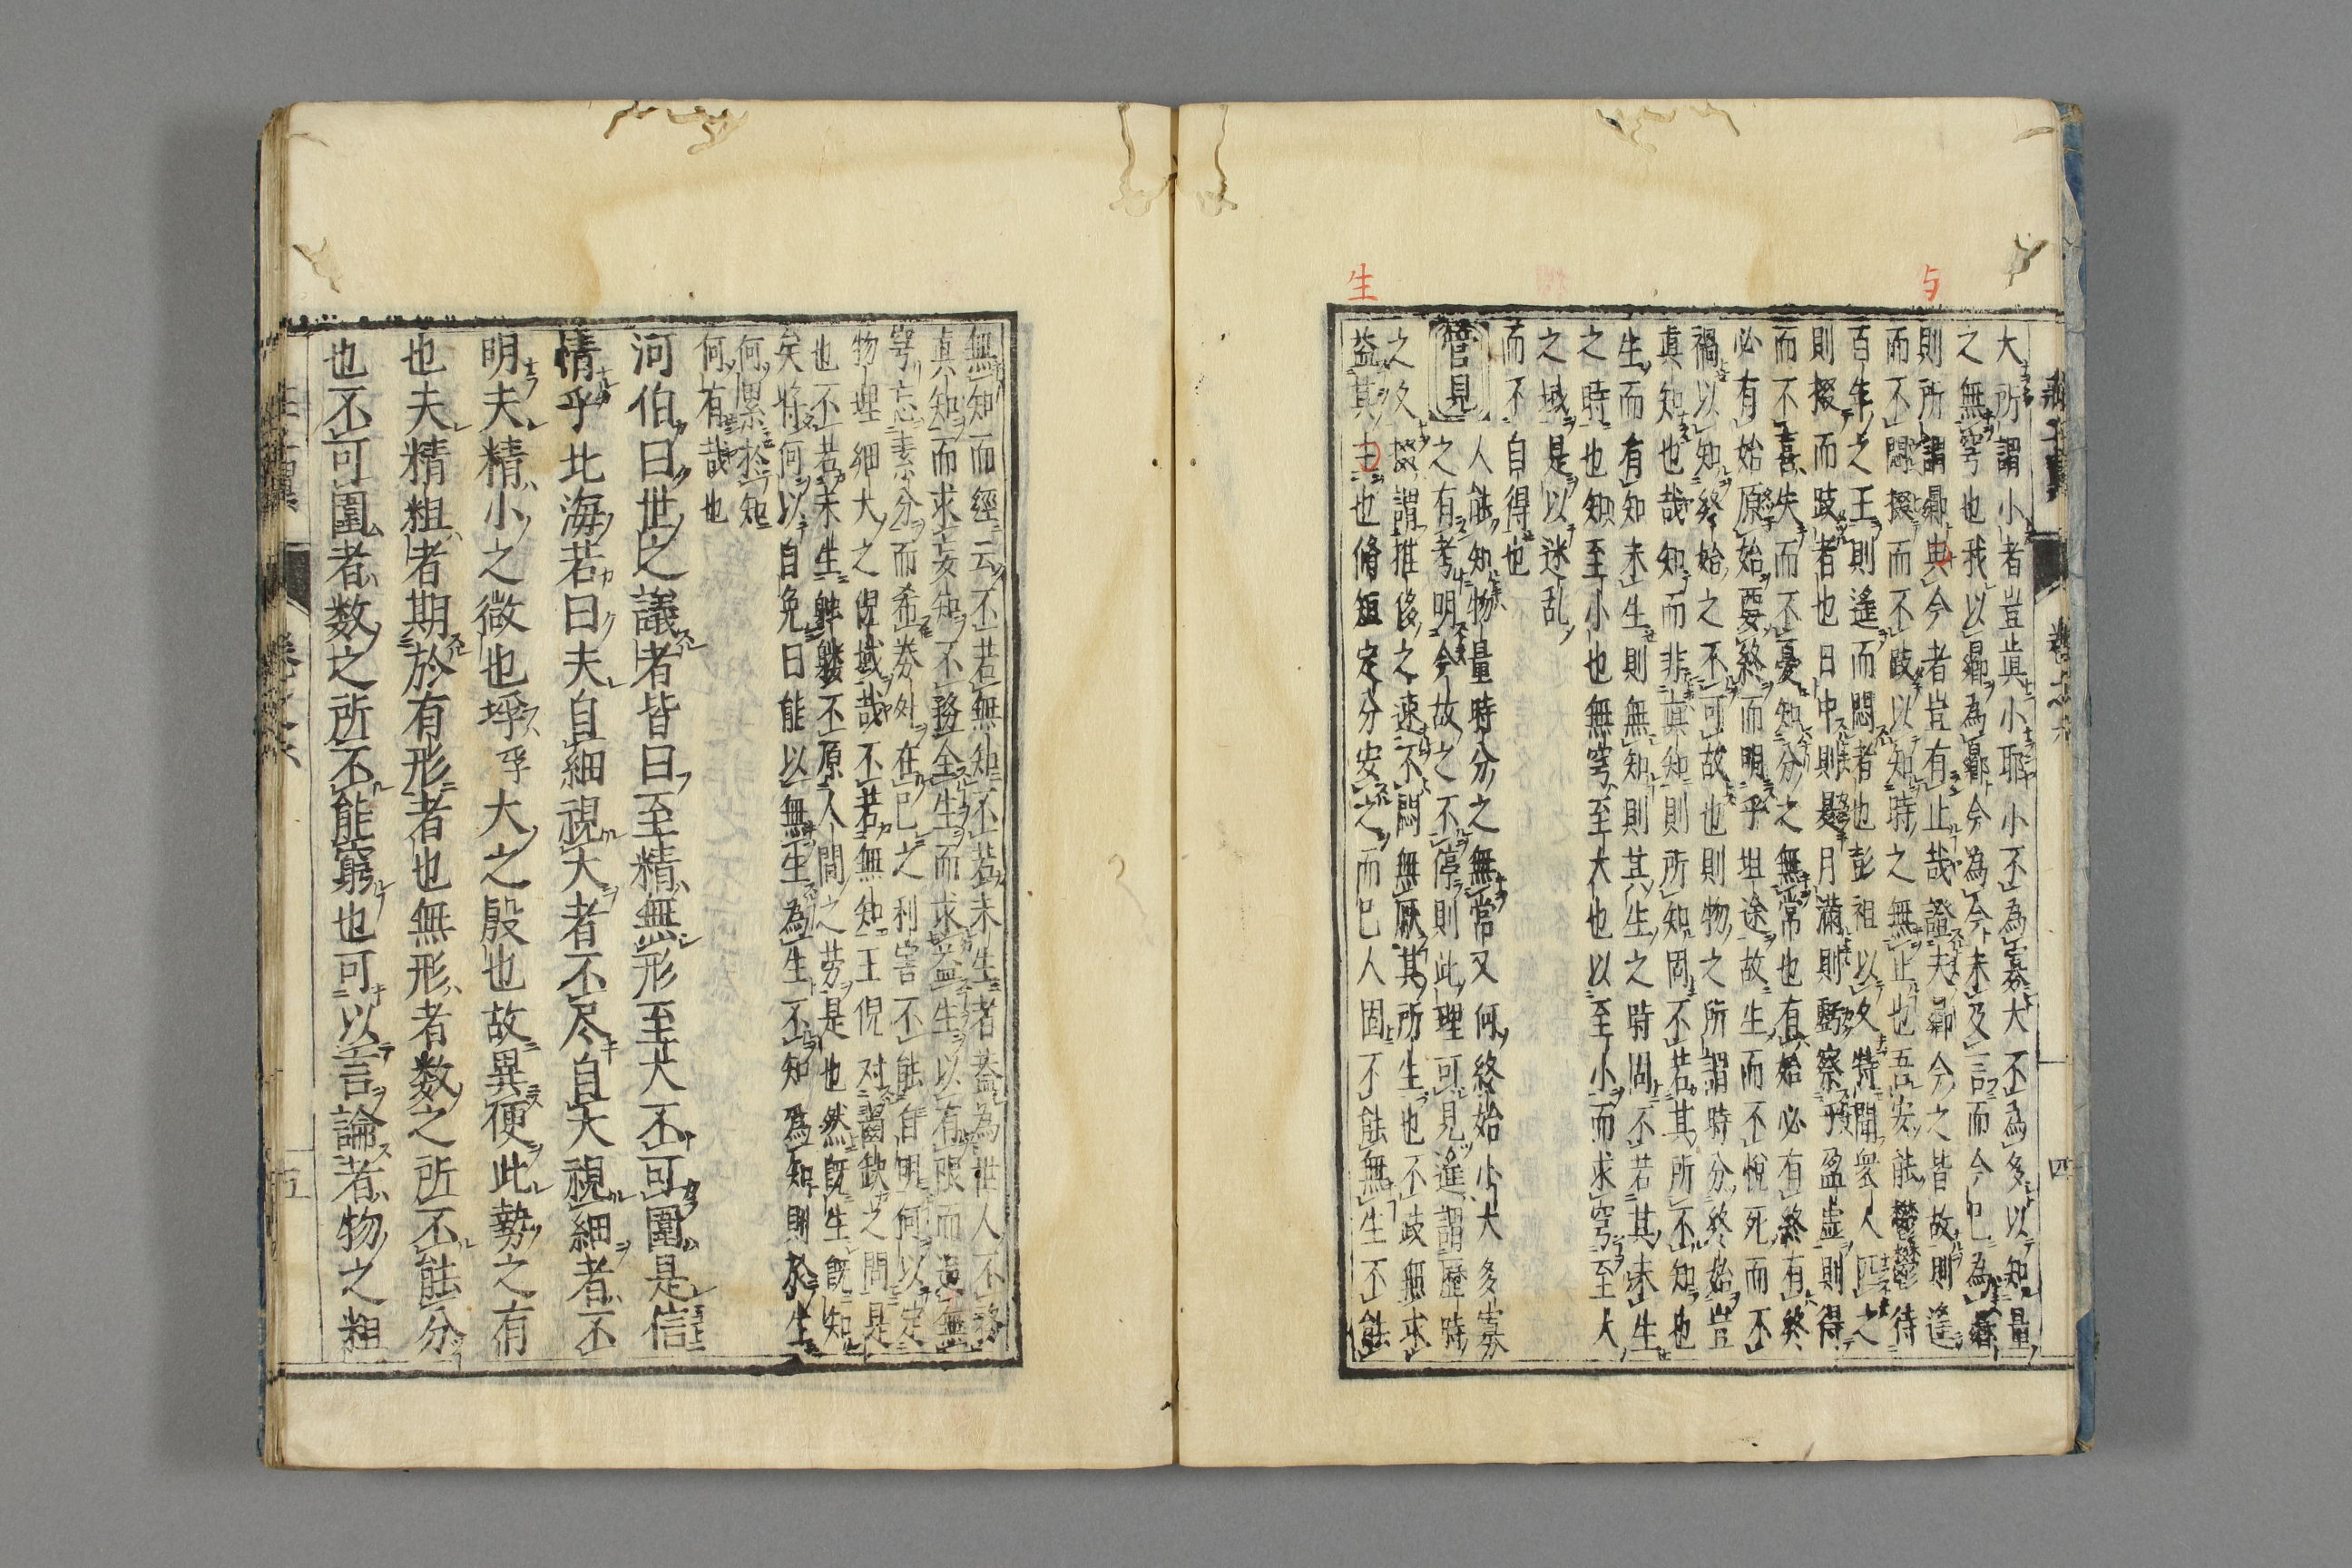 与
生
大所謂小者豈真小耶小不為寡大不為多以知量
之無窮也我以曏為曏今為今未及言而今已為曏
則所謂曏典今者豈有止哉證夫曏今之皆故則遥
而不悶掇而不跂以知時之無止也吾安能鬱鬱待
百年之王則遥而悶者也彭祖以久特聞衆人匹之
則掇而跂者也日中則昃月滿則虧察乎盈虚則得
而不喜失而不憂知分之無常也有始必有終有終
必有始原始要終而明乎坦途故生而不悅死而不
禍以知終始之不可故也則物之所謂時分終始豈
真知也哉知而非真知則所知固不若其所不知也
生而有知未生則無知則其生之時固不若其未生
之時也知至小也無窮至大也以至小而求窮至大
之域是以迷乱
而不自得也
管見人能知物量時分之無常又何終始小大多寡
之有考明今故之不停則此理可見遥謂歴時
之久掇謂推移之速不悶無厭其所生也不跂無求
益其主也脩短定分安之而已人固不能無生不能
莊子翼 卷之六 四
無知而經云不若無知不若未生者蓋為世人不務
真知而求妄知不務全生而求益生以有限而追無
窮忘素分而希券外在已之利害不能自明何以定
物理細大之倪域哉不若無知王倪対齧缺之問是
也不若未生髑髏不原人間之労是也然既生既知
矣将何以自免曰能以無生為生不知為知則於生
何累於知
何有哉也
河伯曰世之議者皆曰至精無形至大不可圍是信
情乎北海若曰夫自細視大者不尽自大視細者不
明夫精小之微也垺乎大之殷也故異便此勢之有
也夫精粗者期於有形者也無形者数之所不能分
也不可圍者数之所不能窮也可以言論者物之粗
五